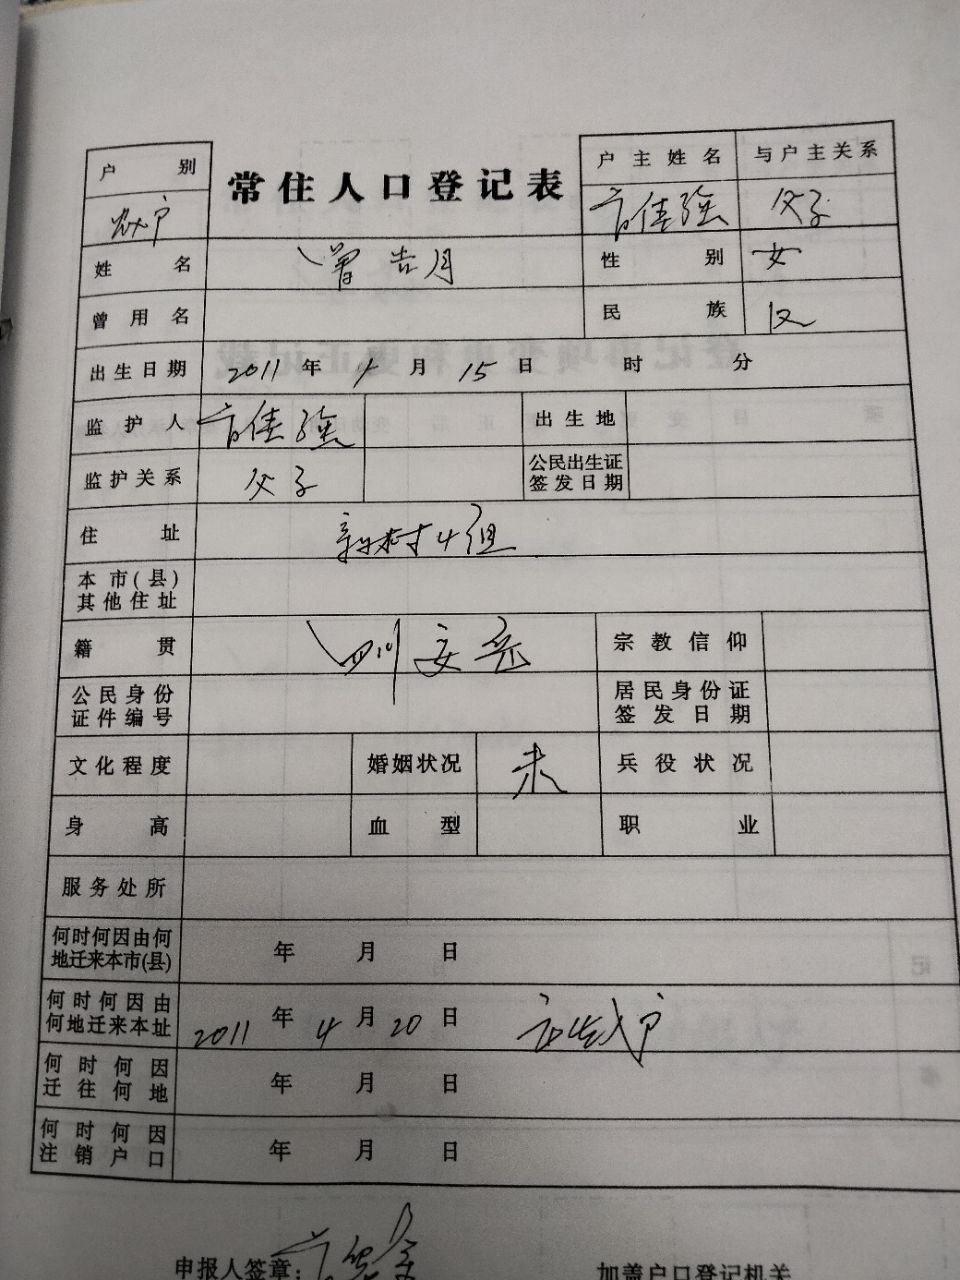 常住人口登记表
户别 农户
户主姓名 与户主关系
佳强 父子
姓名 曾 月 性别 女
曾用名 民族 汉
出生日期 2011年4月15日 时 分
监护人 佳强 出生地
监护关系 父子 公民出生证签发日期
住址 新村4组
本市(县)其他住址
籍贯 四川安岳 宗教信仰
公民身份证件编号 居民身份证签发日期
文化程度 婚姻状况 未 兵役状况
身高 血型 职业
服务处所
何时何因由何地迁来本市(县) 年 月 日
何时何因由何地迁来本址 2011年4月20日 出生入户
何时何因迁往何地 年 月 日
何时何因注销户口 年 月 日
申报人签章: 加盖户口登记机关